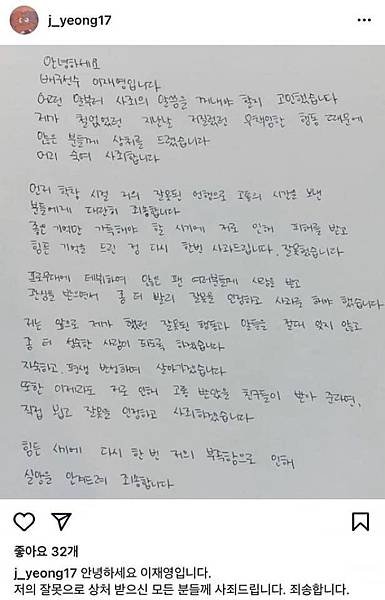 j_yeong17
안녕하세요
배구선수 이재영입니다
어떤 말부터 사죄의 말씀을 꺼내야 할지 고민했습니다
제가 철없었던 지난날 저질렀던 무책임한 행동 때문에
많은 분들께 상처를 드렸습니다
머리 숙여 사죄합니다
먼저 학창 시절 저의 잘못된 언행으로 고통의 시간을 보낸
분들에게 대단히 죄송합니다
좋은 기억만 가득해야 할 시기에 저로 인해 피해를 받고
힘든 기억을 드린 점 다시 한번 사과드립니다. 잘못했습니다
프로무대에 데뷔하여 많은 팬 여러분들께 사랑을 받고
관심을 받으면서 좀 더 빨리 잘못을 인정하고 사죄를 해야 했습니다
저는 앞으로 제가 했던 잘못된 행동과 말들을 절대 잊지 않고
좀 더 성숙한 사람이 되도록 하겠습니다
자숙하고, 평생 반성하며 살아가겠습니다
또한 이제라도 저로 인해 고통 받았을 친구들이 받아 준다면,
직접 뵙고 잘못을 인정하고 사죄하겠습니다
힘든 시기에 다시 한 번 저의 부족함으로 인해
실망을 안겨드려 죄송합니다
좋아요 32개
j_yeong17 안녕하세요 이재영입니다.
저의 잘못으로 상처 받으신 모든 분들께 사죄드립니다. 죄송합니다.